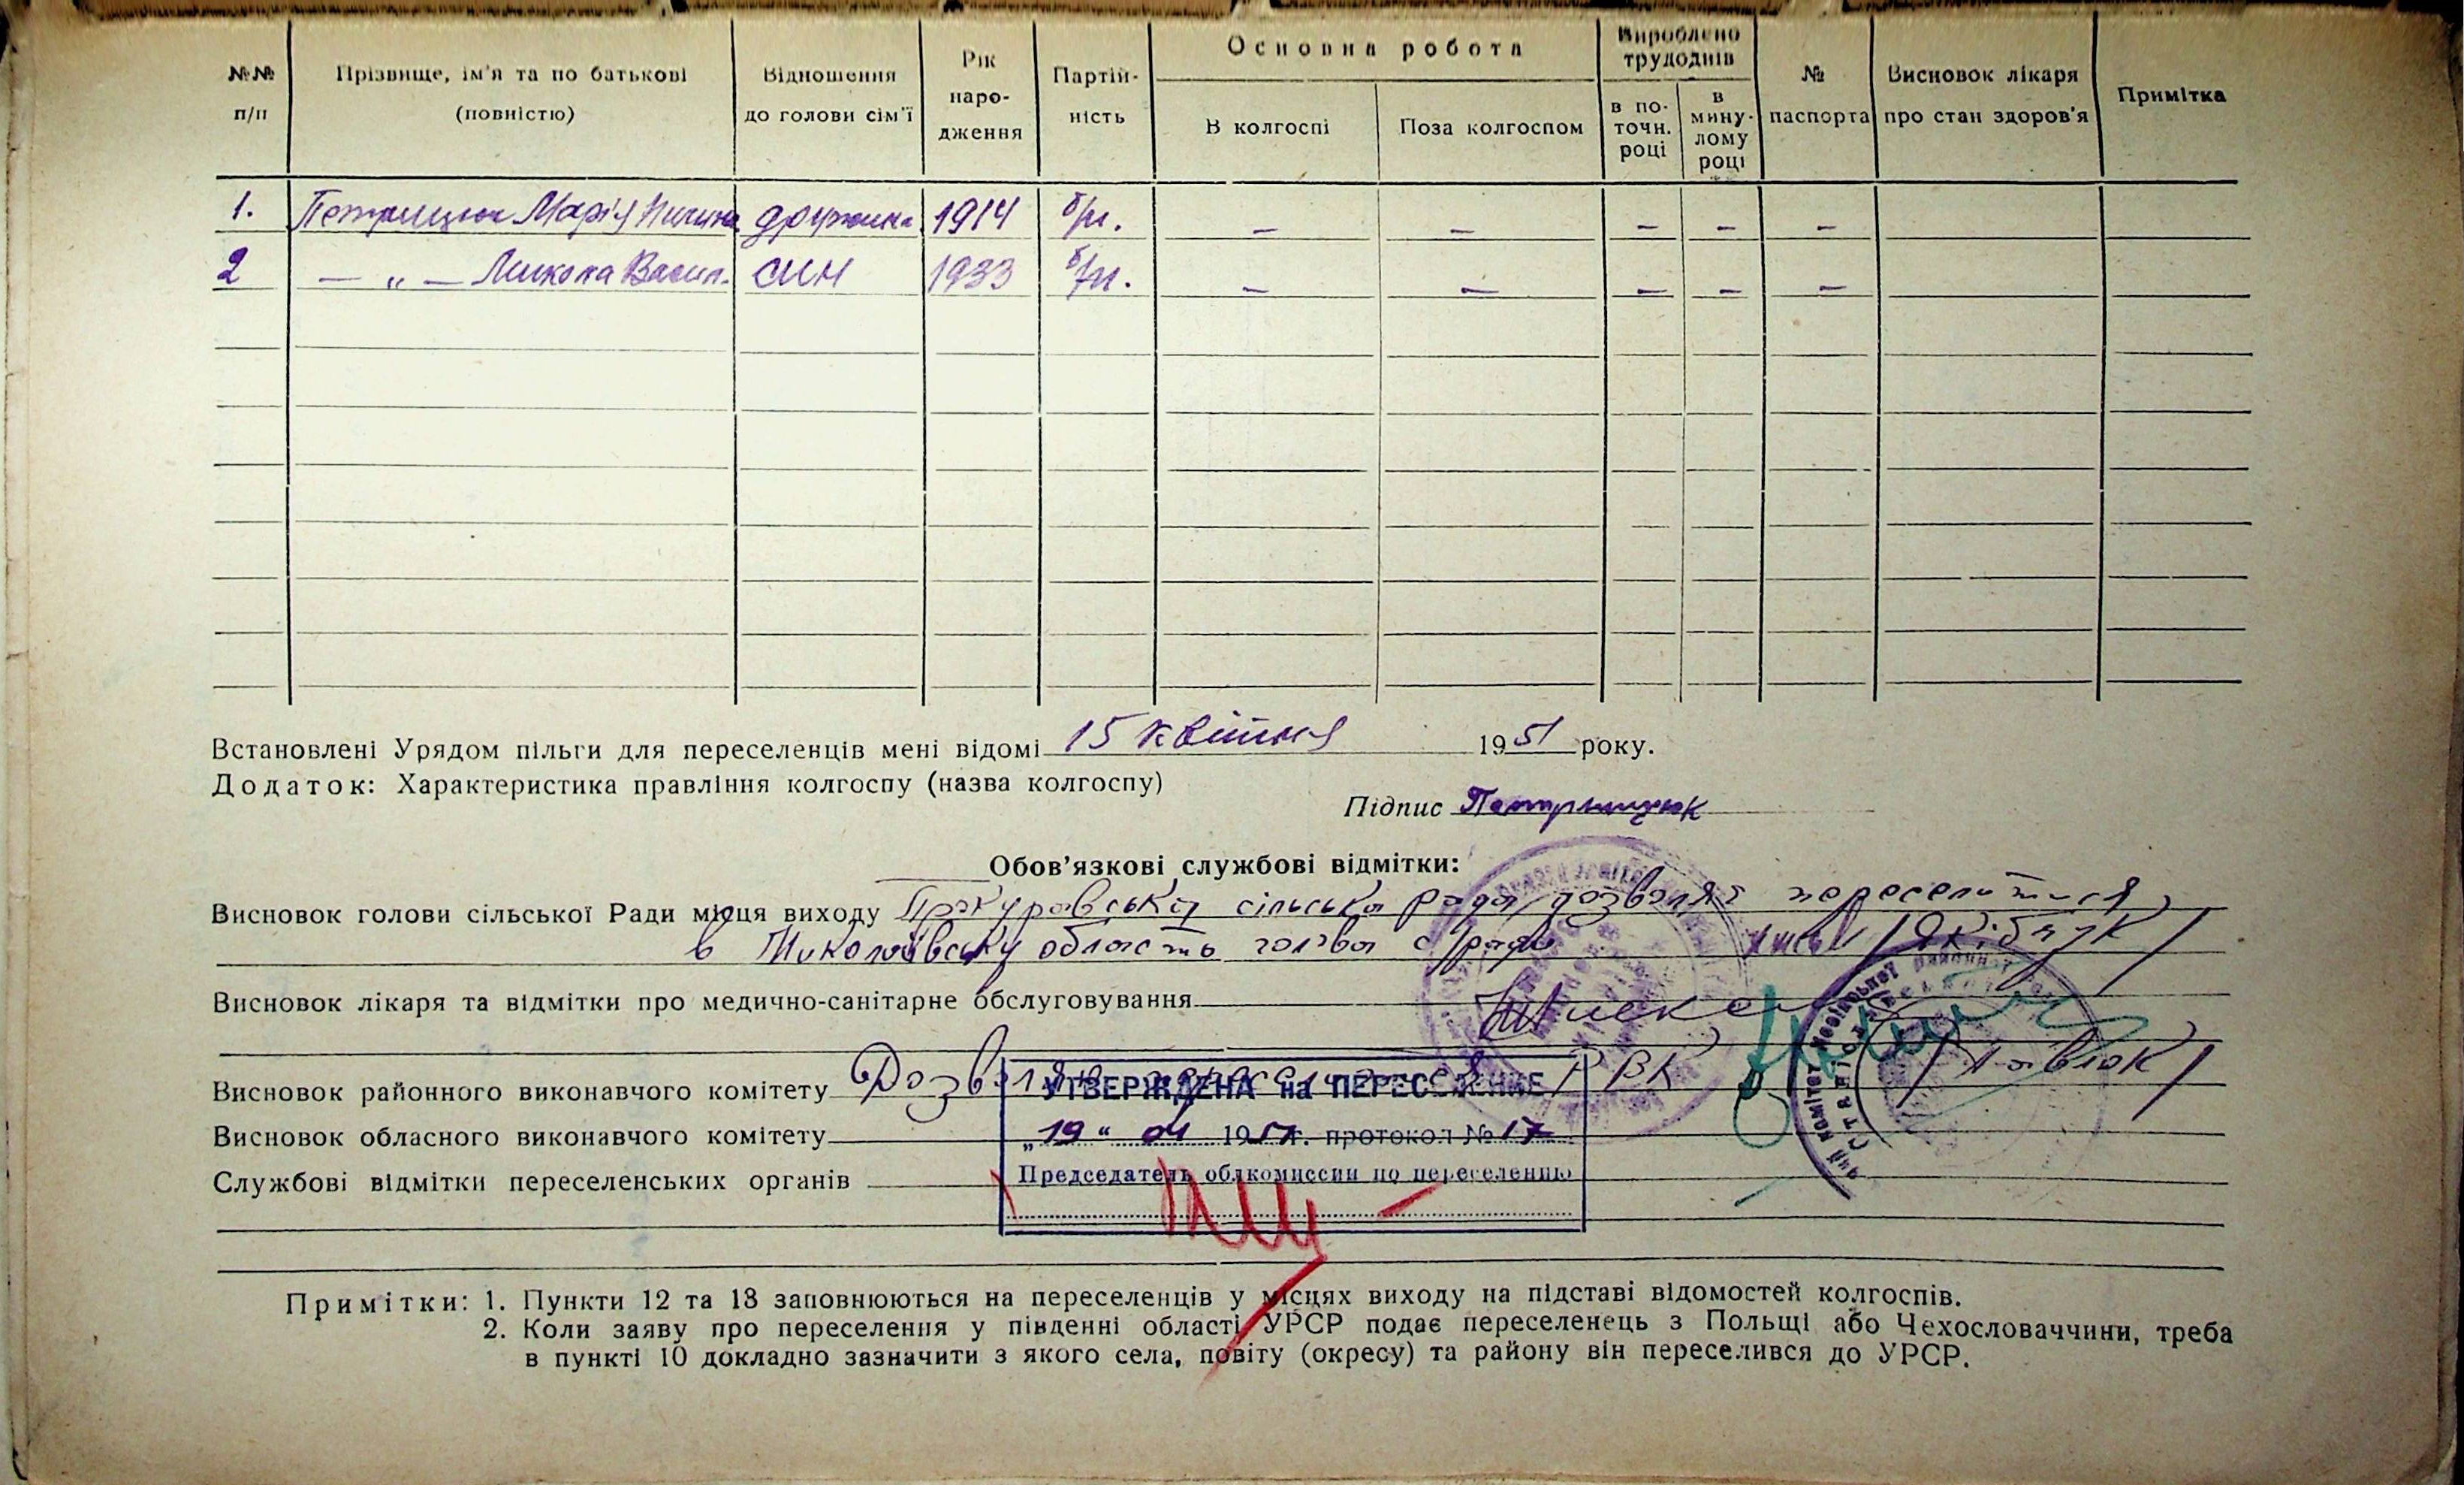 №№ п/п
Прізвище, ім'я та по батькові (повністю)
Відношення до голови сім'ї
Рік народження
Партійність
Основна робота
В колгоспі
Поза колгоспом
Вироблено трудоднів
в поточн. році
в минулому році
№ паспорта
Висновок лікаря про стан здоров'я
Примітка
1. Петрищук Марія дружина 1914 б/п. — — — — —
2 — „ — Микола Васил. син 1933 б/п. — — — — —
Встановлені Урядом пільги для переселенців мені відомі 15 квітня 1951 року.
Додаток: Характеристика правління колгоспу (назва колгоспу)
Підпис Петрищук
Обов'язкові службові відмітки:
Висновок голови сільської Ради місця виходу Прокуравська сільська рада дозволяє переселитися
в Миколаївську область голова с/ради /Якібчук/
Висновок лікаря та відмітки про медично-санітарне обслуговування
Висновок районного виконавчого комітету РВК /Павлюк/
УТВЕРЖДЕНА на ПЕРЕСЕЛЕНИЕ
Висновок обласного виконавчого комітету
„19" 04 1951г. протокол № 17
Службові відмітки переселенських органів
Председатель облкомиссии по переселению
Примітки: 1. Пункти 12 та 13 заповнюються на переселенців у місцях виходу на підставі відомостей колгоспів.
2. Коли заяву про переселення у південні області УРСР подає переселенець з Польщі або Чехословаччини, треба
в пункті 10 докладно зазначити з якого села, повіту (окресу) та району він переселився до УРСР.